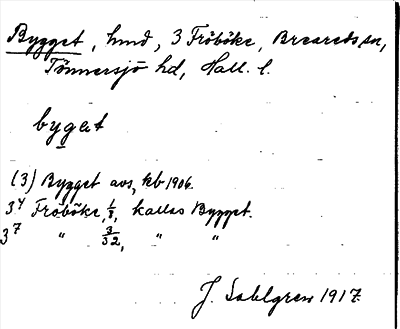 Bygget, hmd, 3 Fröböke, Breareds sn,
Tönnersjö hd, Hall. l.
bygət
(3) Bygget avs, kb 1906.
3⁴ Fröböke, 1/8, kallas Bygget.
3⁷ " 3/32, " "
J. Sahlgren 1917.